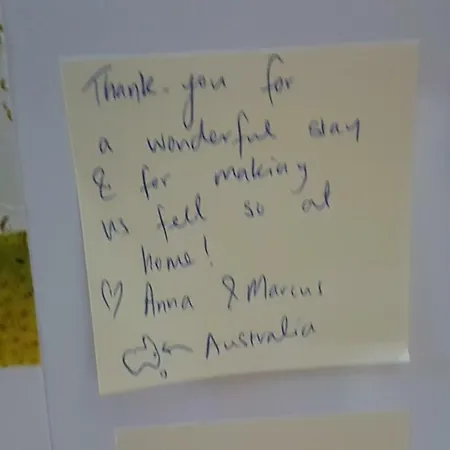 Thank-you for
a wonderful stay
& for making
us fell so at
home!
♡ Anna & Marcus
← Australia